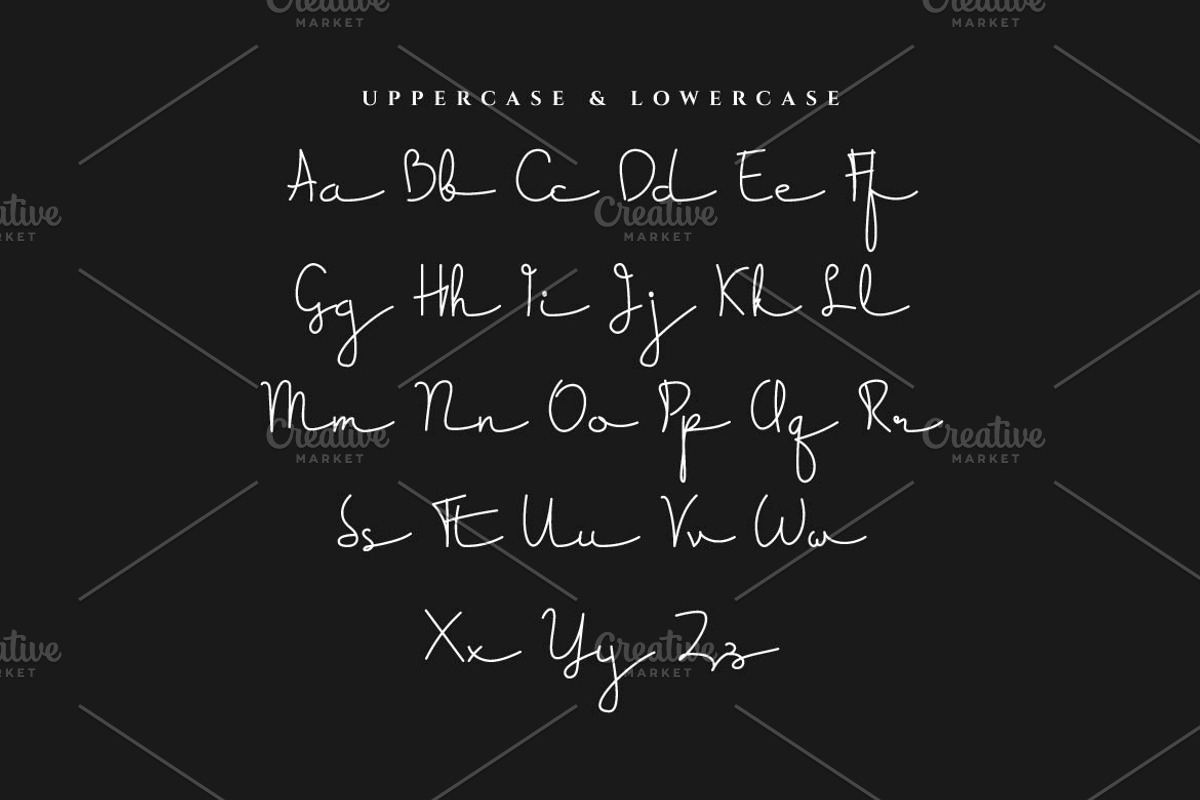 UPPERCASE & LOWERCASE
Aa Bb Cc Dd Ee Ff
Gg Hh Ii Jj Kk Ll
Mm Nn Oo Pp Qq Rr
Ss Tt Uu Vv Ww
Xx Yy Zz
Creative
MARKET
Creative
MARKET
Creative
MARKET
Creative
MARKET
Creative
MARKET
Creative
MARKET
Creative
MARKET
Creative
MARKET